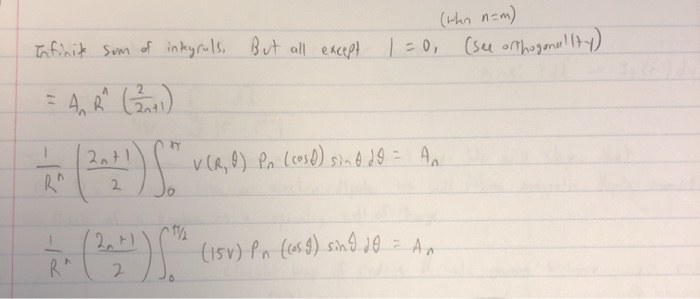 (when n=m)
Infinite sum of integrals. But all except 1 = 0, (see orthogonality)
= A_n R^n (2/(2n+1))
1/R^n ((2n+1)/2) ∫_0^π V(R,θ) P_n (cosθ) sinθ dθ = A_n
1/R^n ((2n+1)/2) ∫_0^{π/2} (15V) P_n (cosθ) sinθ dθ = A_n